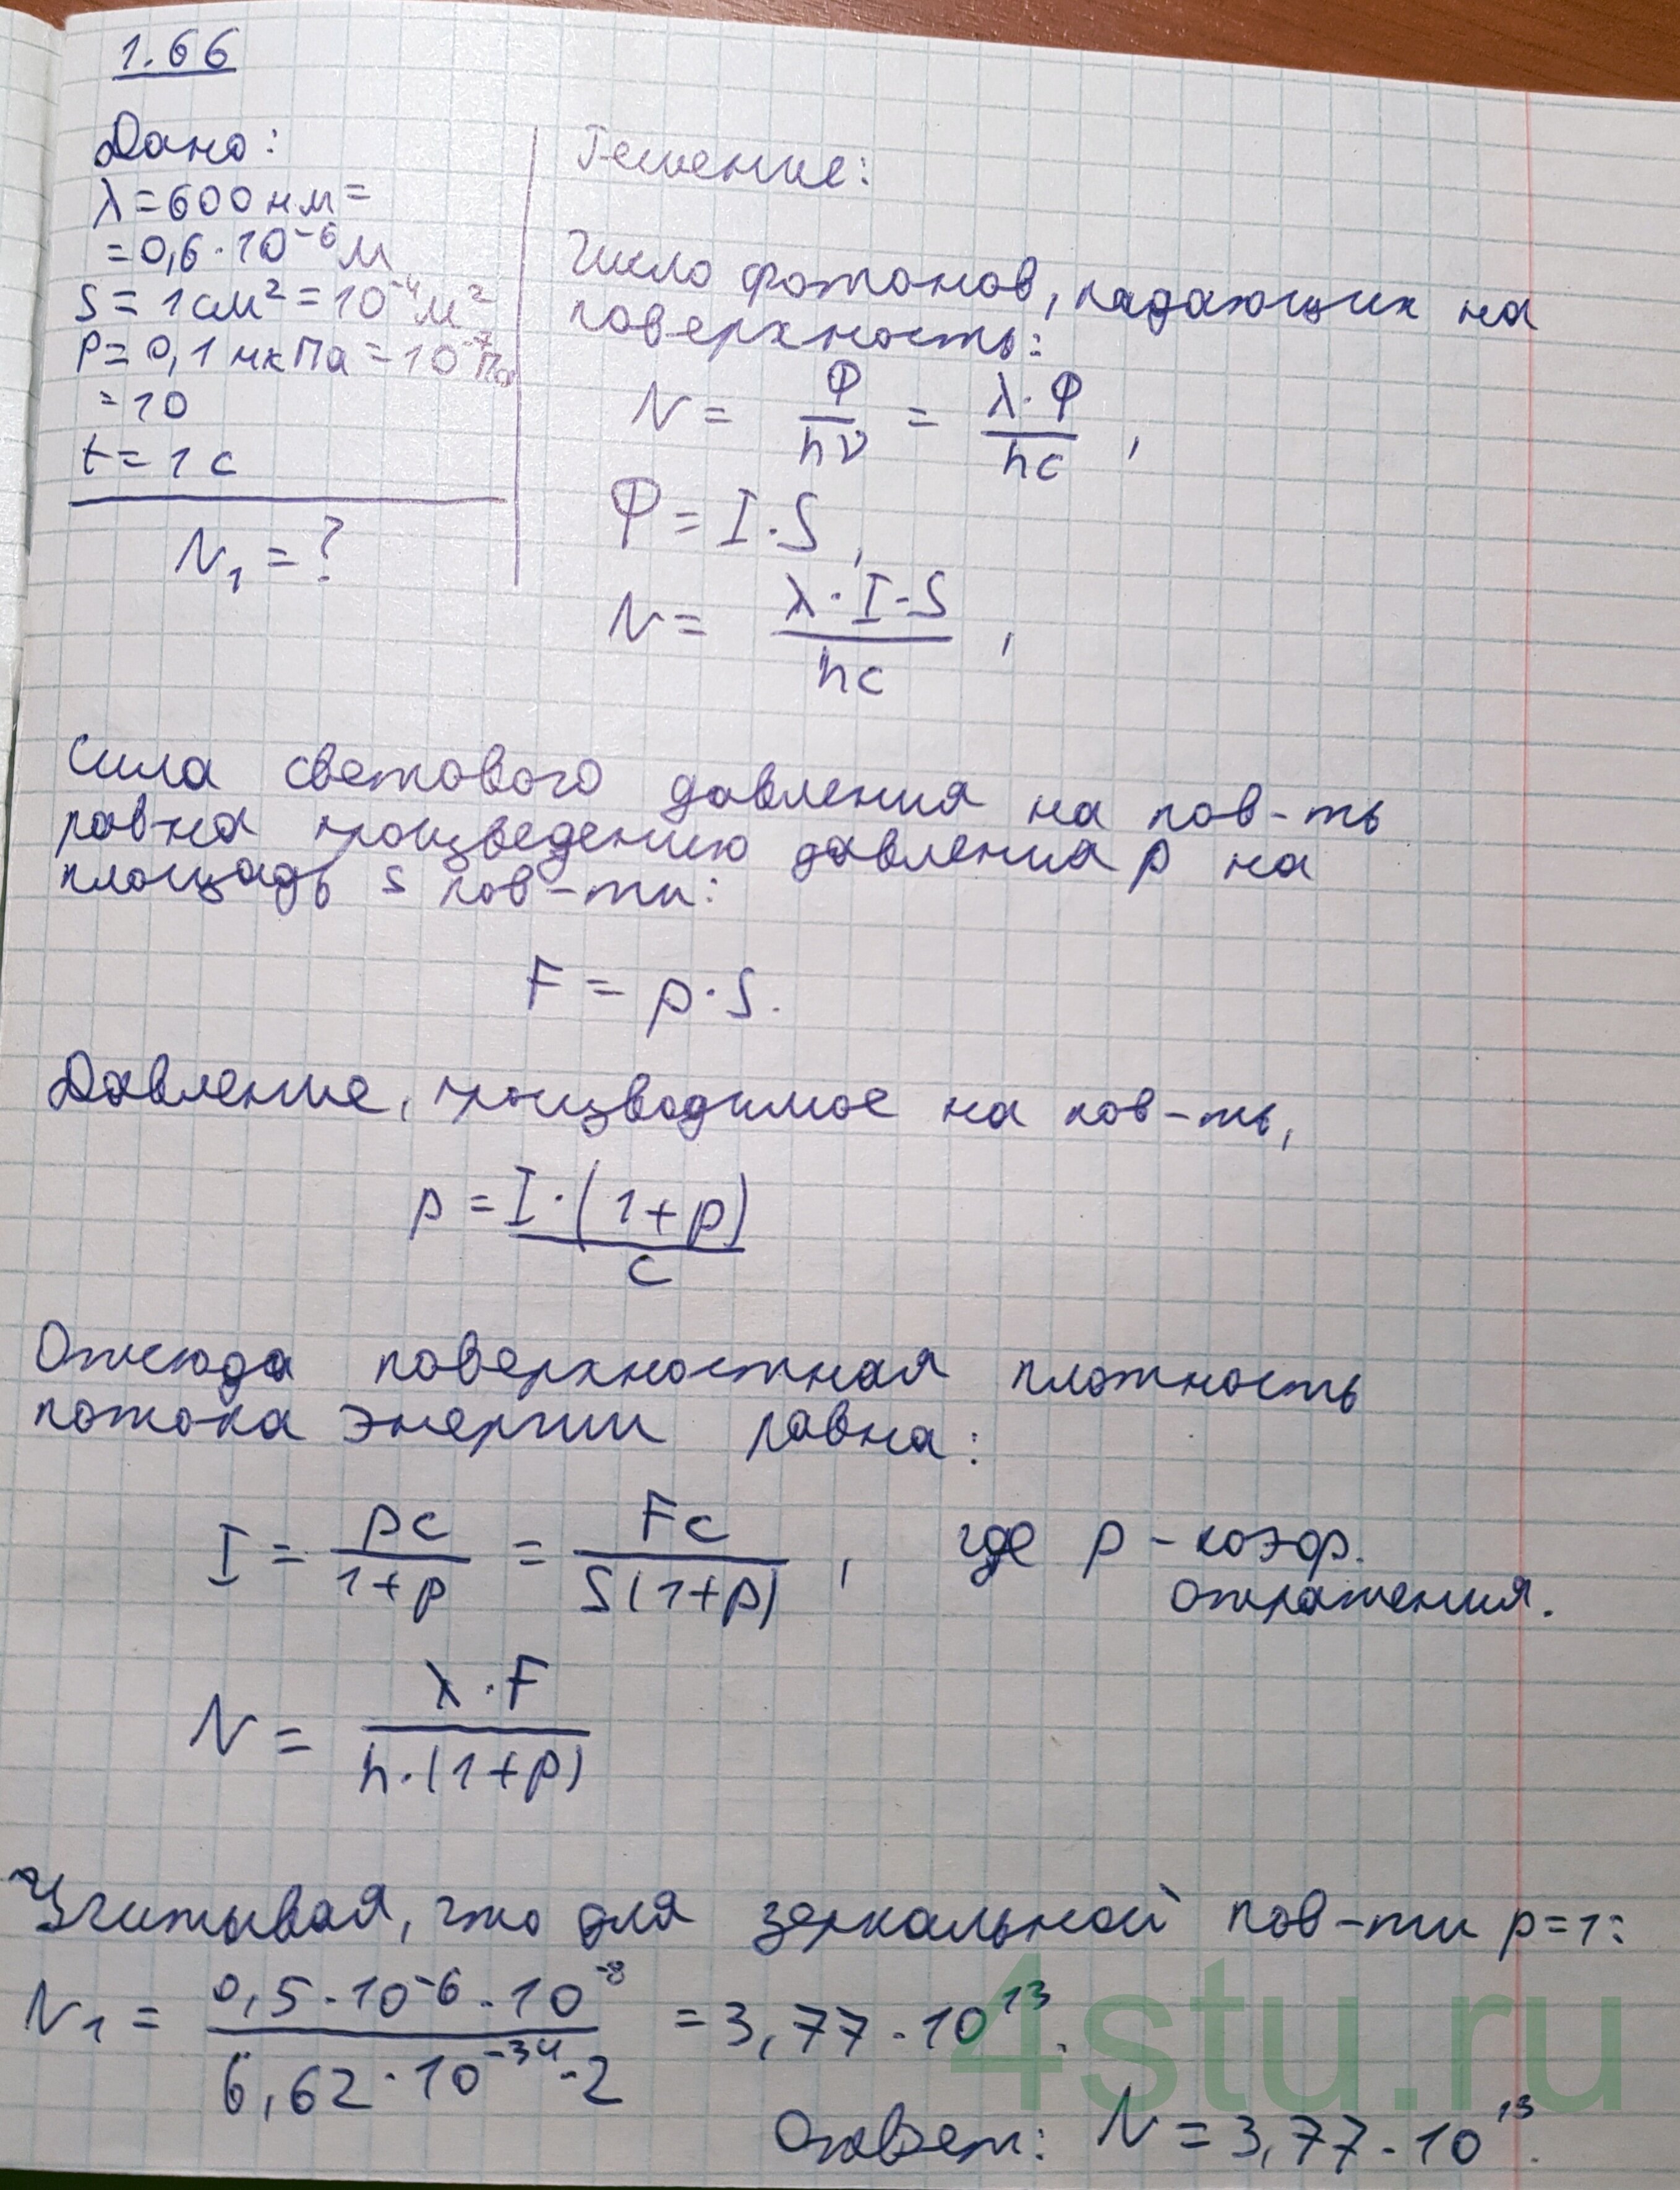 1.66
Дано:
λ=600нм=
=0,6·10⁻⁶м
S=1см²=10⁻⁴м²
P=0,1мкПа=10⁻⁷Па
=10
t=1с
N₁=?
Решение:
Число фотонов, падающих на
поверхность:
N = Φ/hν = λ·Φ/hc ,
Φ=I·S,
N= λ·I·S/hc ,
Сила светового давления на пов-ть
равна произведению давления p на
площадь s пов-ти:
F = p·S.
Давление, производимое на пов-ть,
p = I·(1+p)/c
Отсюда поверхностная плотность
потока энергии равна:
I = pc/1+p = Fc/S(1+p) , где p-коэф.
отражения.
N = λ·F/h·(1+p)
Учитывая, что для зеркальной пов-ти p=1:
N₁= 0,5·10⁻⁶·10⁻⁸/6,62·10⁻³⁴·2 =3,77·10¹³.
4stu.ru
Ответ: N=3,77·10¹³.